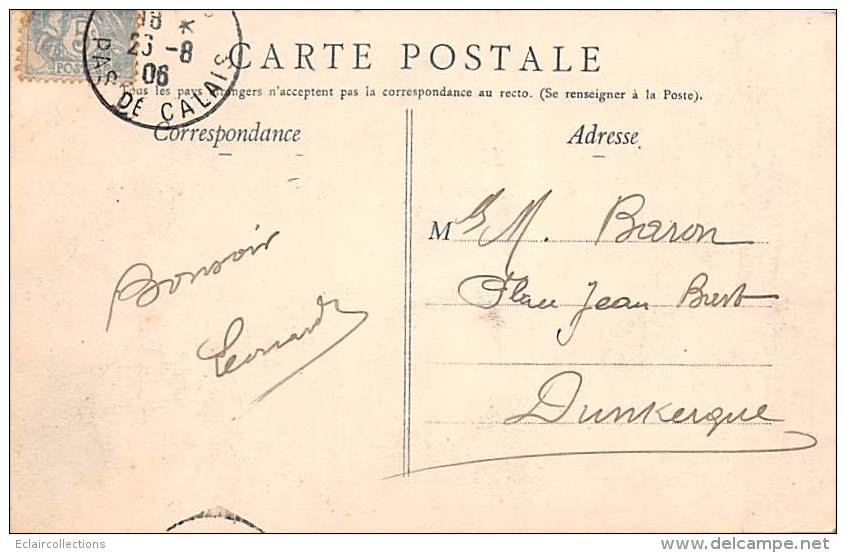 18 *
26 -8
06
PAS DE CALAIS
5
POSTES
CARTE POSTALE
Tous les pays étrangers n'acceptent pas la correspondance au recto. (Se renseigner à la Poste).
Correspondance
Adresse
Bonsoir
Leonard
M M. Baron
Place Jean Bart
Dunkerque
Eclaircollections
www.delcampe.net